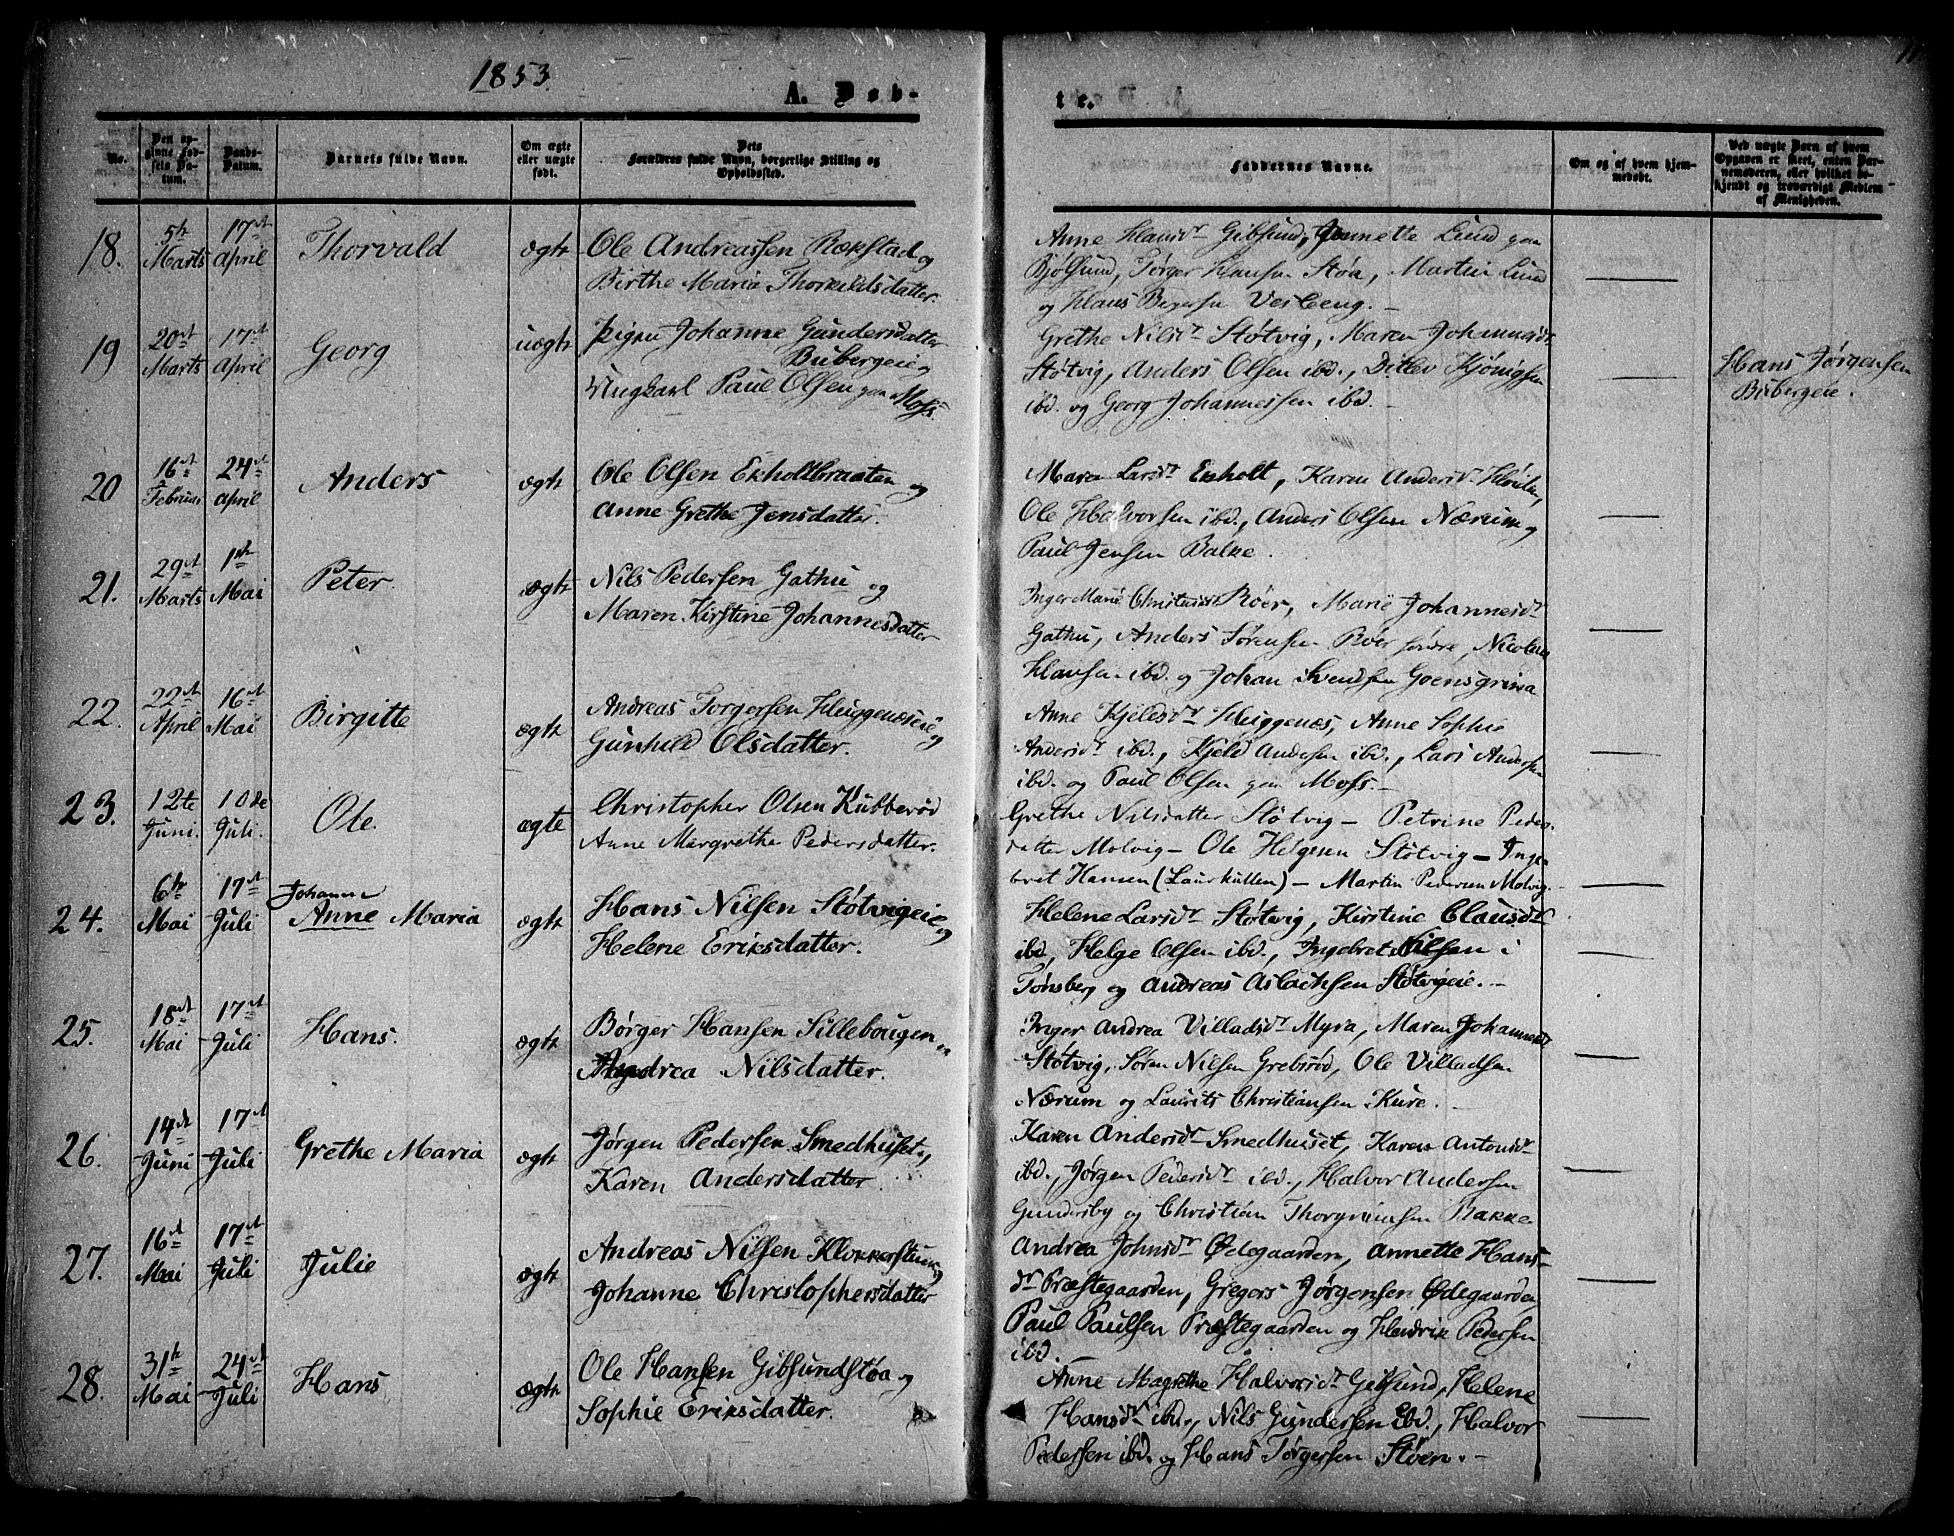 1853.
A. Døb-
te.
No.
Den opginne Fødsels Datum.
Daabs-Datum.
Barnets fulde Navn.
Om ægte eller uægte født.
Dets Forældres fulde Navn, borgerlige Stilling og Opholdssted.
Faddernes Navne.
Om og af hvem hjemmedøbt.
Ved uægte Børn af hvem Opgaven er skeet, enten Barnemoderen, eller hvilket bekjendt og troværdigt Medlem af Menigheden.
18. 5te Marts 17de April Thorvald ægte Ole Andreassen Rækstad og
Birthe Maria Thorkildsdatter
Anne Klausdr Gibsund, Jannette Lund paa
Bjøsund, Jørger Klausen Støa, Martin Lund
og Klaus Vesteng. —
19 20de Marts 17de April Georg uægte Pigen Johanne Gundersdatter
Bubergeie og
Ungkarl Paul Olsen paa Moss.
Grethe Nilsdr Støtvig, Maren Johannesdr
Støtvig, Anders Olsen ibd., Ditlev Kjønigsen
ibd. og Georg Johannessen ibd. —
Hans Jørgensen
Bubergeie.
20 16de Februar 24de April Anders ægte Ole Olsen Ekholtbraaten og
Anne Grethe Jensdatter.
Maren Larsdr Ekholt, Karen Andersdr
Ole Halvorsen ibd., Anders Olsen Nærum og
Paul Jensen Balke.
21. 29de Marts 1ste Mai Peter. ægte Nils Pedersen Gathu og
Maren Kirstine Johannesdatter
Inger Marie Røer, Marie Johannesdr
Gathu, Anders Sørensen Røer søndre, Nicolai
Klausen ibd. og Johan Svendsen Goensgrina
22. 22de April 16de Mai Birgitte ægte Andreas Torgersen Kluggenæseie og
Gunhild Olsdatter.
Anne Kjeldsdr Kluggenæs, Anne Sophie
Andersdr ibd., Kjeld Andersen ibd., Lars Andersen
ibd. og Paul Olsen paa Moss. —
23. 12te Juni. 10de Juli. Ole. ægte Christopher Olsen Kubberød
Anne Margrethe Pedersdatter.
Grethe Nilsdatter Støtvig — Petrine Peders-
datter Molvig — Ole Helgesen Støtvig — Inge-
bret Hansen (Laurkullen) — Martin Pedersen Molvig.
24. 6te Mai 17de Juli Johanne
Anne Maria ægte Hans Nilsen Støtvigeie og
Helene Eriksdatter.
Helene Larsdr Støtvig, Kirstine Clausdr
ibd., Helge Olsen ibd., Ingebret Nilsen i
Tønsberg og Andreas Aslachsen Støtvigeie. —
25. 18de Mai 17de Juli Hans. ægte Børger Hansen Sillebougen
Andrea Nilsdatter.
Inger Andrea Villadsdr Myra, Maren Johannesdr
Støtvig, Søren Nilsen Grebsrød, Ole Villadsen
Nærum og Laurits Christiansen Kure. —
26. 14de Juni 17de Juli Grethe Maria ægte Jørgen Pedersen Smedhuset,
Karen Andersdatter
Karen Andersdr Smedhuset, Karen Antonsdr
ibd., Jørgen Pedersdr ibd., Halvor Andersen
Gundersby og Christian Thorgrimsen Bakke
27. 16de Mai 17de Juli Julie ægte Andreas Nilsen Klokkerstuen og
Johanne Christophersdatter
Andrea Johnsdr Ødegaarden, Annette Hans-
dr Præstegaarden, Gregors Jørgensen Ødegaarden
Paul Paulsen Præstegaarden og Hendrik Pedersen
ibd. —
28. 31te Mai 24de Juli Hans ægte Ole Hansen Gibsundstøa og
Sophie Eriksdatter.
Anne Magrethe Halvorsdr Gibsund, Helene
Hansdr ibd., Nils Gundersen ibd., Halvor
Pedersen ibd. og Hans Torgersen Støen. —